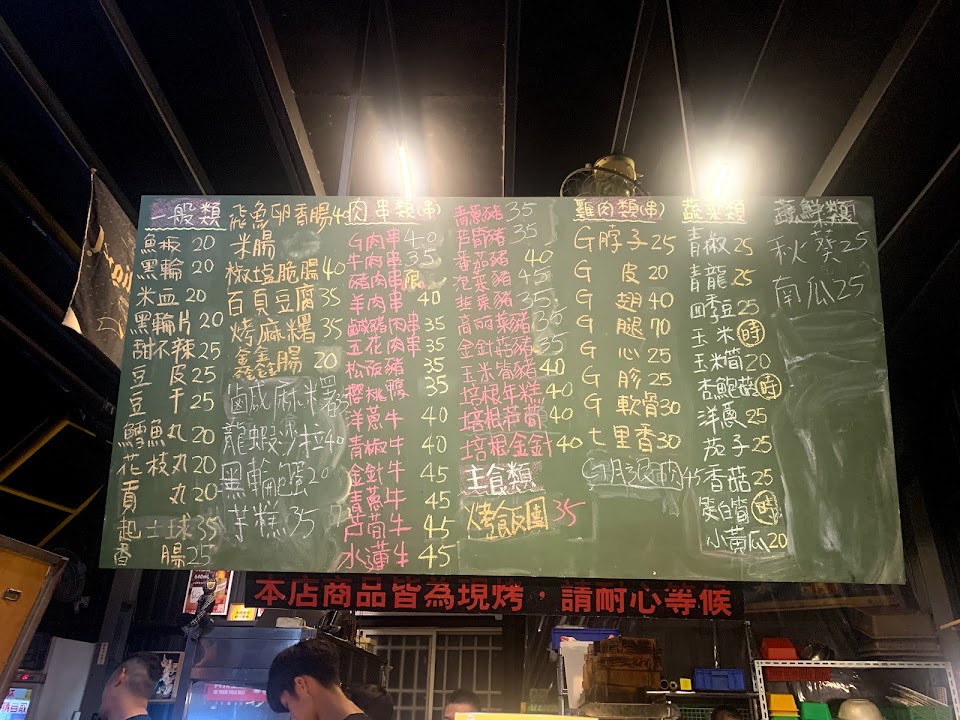 一般類
魚板 20
黑輪 20
米血 20
黑輪片 20
甜不辣 25
豆皮 25
豆干 25
鱈魚丸 20
花枝丸 20
貢丸 20
起士球 35
香腸 25
飛魚卵香腸 40
米腸
椒塩脆腸 40
百頁豆腐 35
烤麻糬 35
鑫鑫腸 20
鹹麻糬 35
龍蝦沙拉 40
黑輪爆蛋 20
芋糕 35
肉串類(串)
G肉串 40
牛肉串 35
豬肉串 限
羊肉串 40
鹹豬肉串 35
五花肉串 35
松阪豬 35
櫻桃鴨 35
洋蔥牛 40
青椒牛 40
金針牛 45
青蔥牛 45
芦筍牛 45
水蓮牛 45
青蔥豬 35
芦筍豬 35
番茄豬 40
泡菜豬 45
韭菜豬 35
高麗菜豬 35
金針菇豬 35
玉米筍豬 40
培根年糕 40
培根芦筍 40
培根金針 40
主食類
烤飯糰 35
雞肉類(串)
G脖子 25
G皮 20
G翅 40
G腿 70
G心 25
G胗 25
G軟骨 30
七里香 30
G月液肉 45
蔬菜類
青椒 25
青龍 25
四季豆 25
玉米 時
玉米筍 20
杏鮑菇 時
洋蔥 25
茄子 25
香菇 25
筊白筍 時
小黃瓜 20
蔬鮮類
秋葵 25
南瓜 25
本店商品皆為現烤，請耐心等候